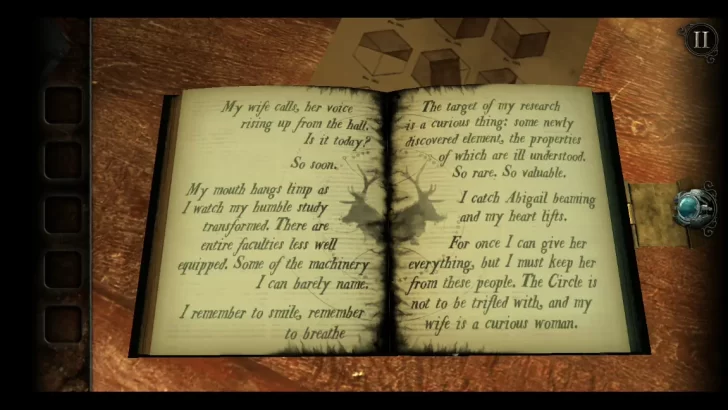 II
My wife calls, her voice
rising up from the hall.
Is it today?
So soon.
My mouth hangs limp as
I watch my humble study
transformed. There are
entire faculties less well
equipped. Some of the machinery
I can barely name.
I remember to smile, remember
to breathe
The target of my research
is a curious thing: some newly
discovered element, the properties
of which are ill understood.
So rare. So valuable.
I catch Abigail beaming
and my heart lifts.
For once I can give her
everything, but I must keep her
from these people. The Circle is
not to be trifled with, and my
wife is a curious woman.